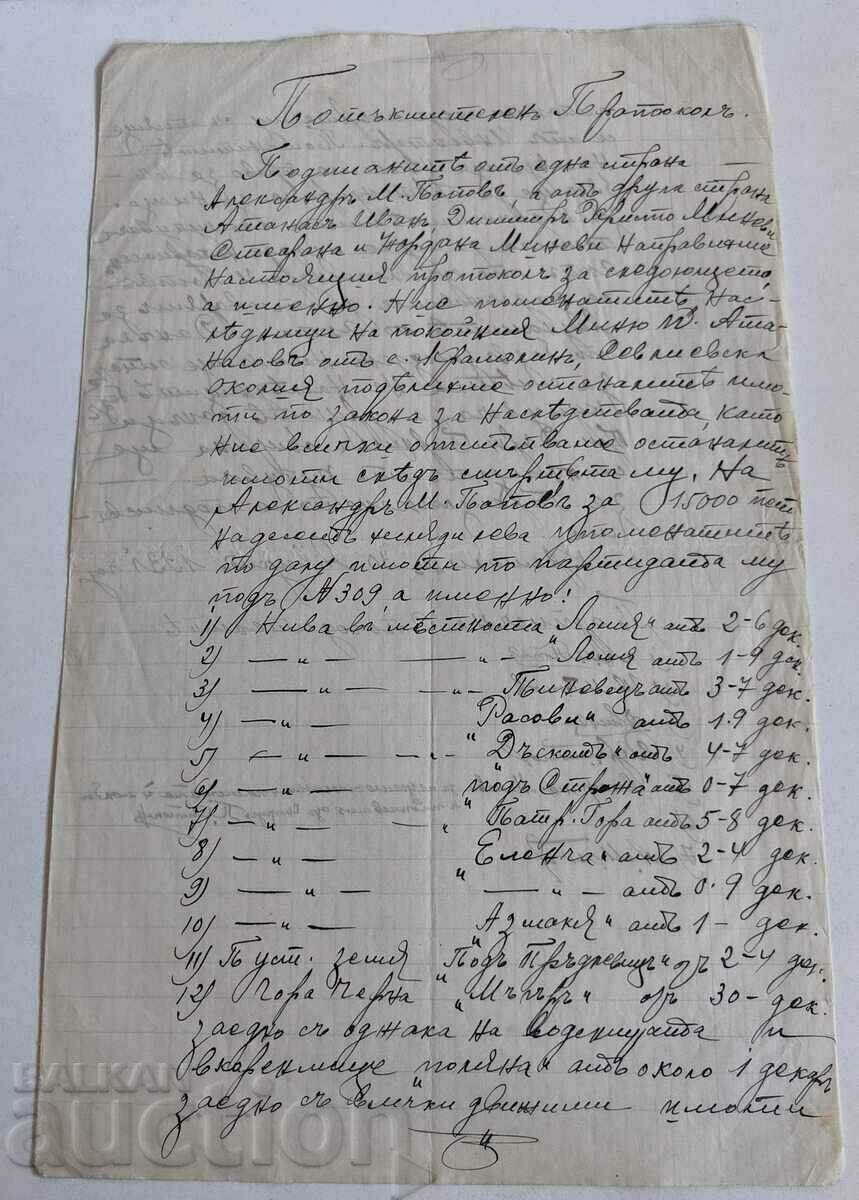 Потъкмителенъ Пратоколъ.
Подписанитѣ отъ една страна —
Александръ М. Поповъ, а отъ друга страна
Атанасъ Иван, Димитръ Христо Минови
Стоянна и Йордана Миневи направихме
настоящия протоколъ за следующето,
а именно. Ние поменатитѣ нас-
лѣдници на покойния Миню П. Ата-
насовъ отъ с. Крамолин, Севлиевска
околия подѣлихме останалитѣ имо-
ти по закона за наслѣдствата, като
ние всички отстѫпваме останалитѣ
имоти слѣдъ смъртьта му. На
Александръ М. Поповъ за 15000 пет
надесеть хиляди лева упоменатитѣ
по долу имоти по партидата му
подъ N 309, а именно:
1) Нива въ мѣстноста „Лония“ отъ 2-6 дек.
2) — „ — — „ — „Лония отъ 1-9 дек.
3) — „ — — „ — отъ 3-7 дек.
4) — „ — „Расови“ отъ 1.9 дек.
5) — „ — — „ — „Дъсколъ“ отъ 4-7 дек.
6) — „ — „подъ Стража“ отъ 0-7 дек.
7) — „ — „Патр. Гора отъ 5-8 дек.
8) — „ — „Еленча“ отъ 2-4 дек.
9) — „ — „ — „ — отъ 0.9 дек.
10) — „ — „Азмакя“ отъ 1 — дек.
11) Пуст. земя „Подъ отъ 2-4 дек.
12) Гора Черна „Мъгъръ“ отъ 30 — дек.
заедно съ оджака на воденицата и
вкоренище „поляна“ отъ около 1 декаръ
заедно съ всички движими имоти
БАЛКАН
auction